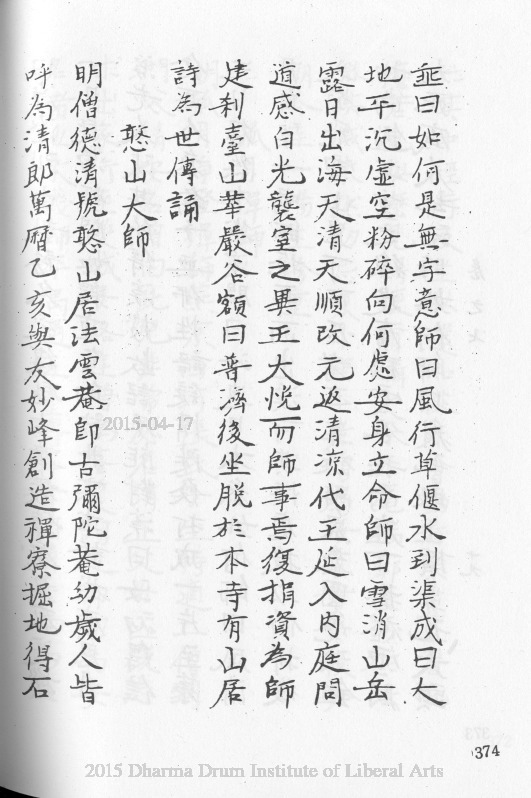 曰如何是無字意師曰風行草偃水到渠成曰大
地平沉虛空粉碎向何處安身立命師曰雪消山岳
露日出海天清天順改元返清凉代王延入内庭問
道感白光襲室之異王大悅而師事焉復捐資為師
建刹臺山華嚴谷額曰普濟後坐脫於本寺有山居
詩為世傳誦
憨山大師
明僧德清號憨山居法雲菴即古彌陀菴幼歲人皆
呼為清郎萬曆乙亥與友妙峰創造禪寮掘地得石
374
2015-04-17
2015 Dharma Drum Institute of Liberal Arts